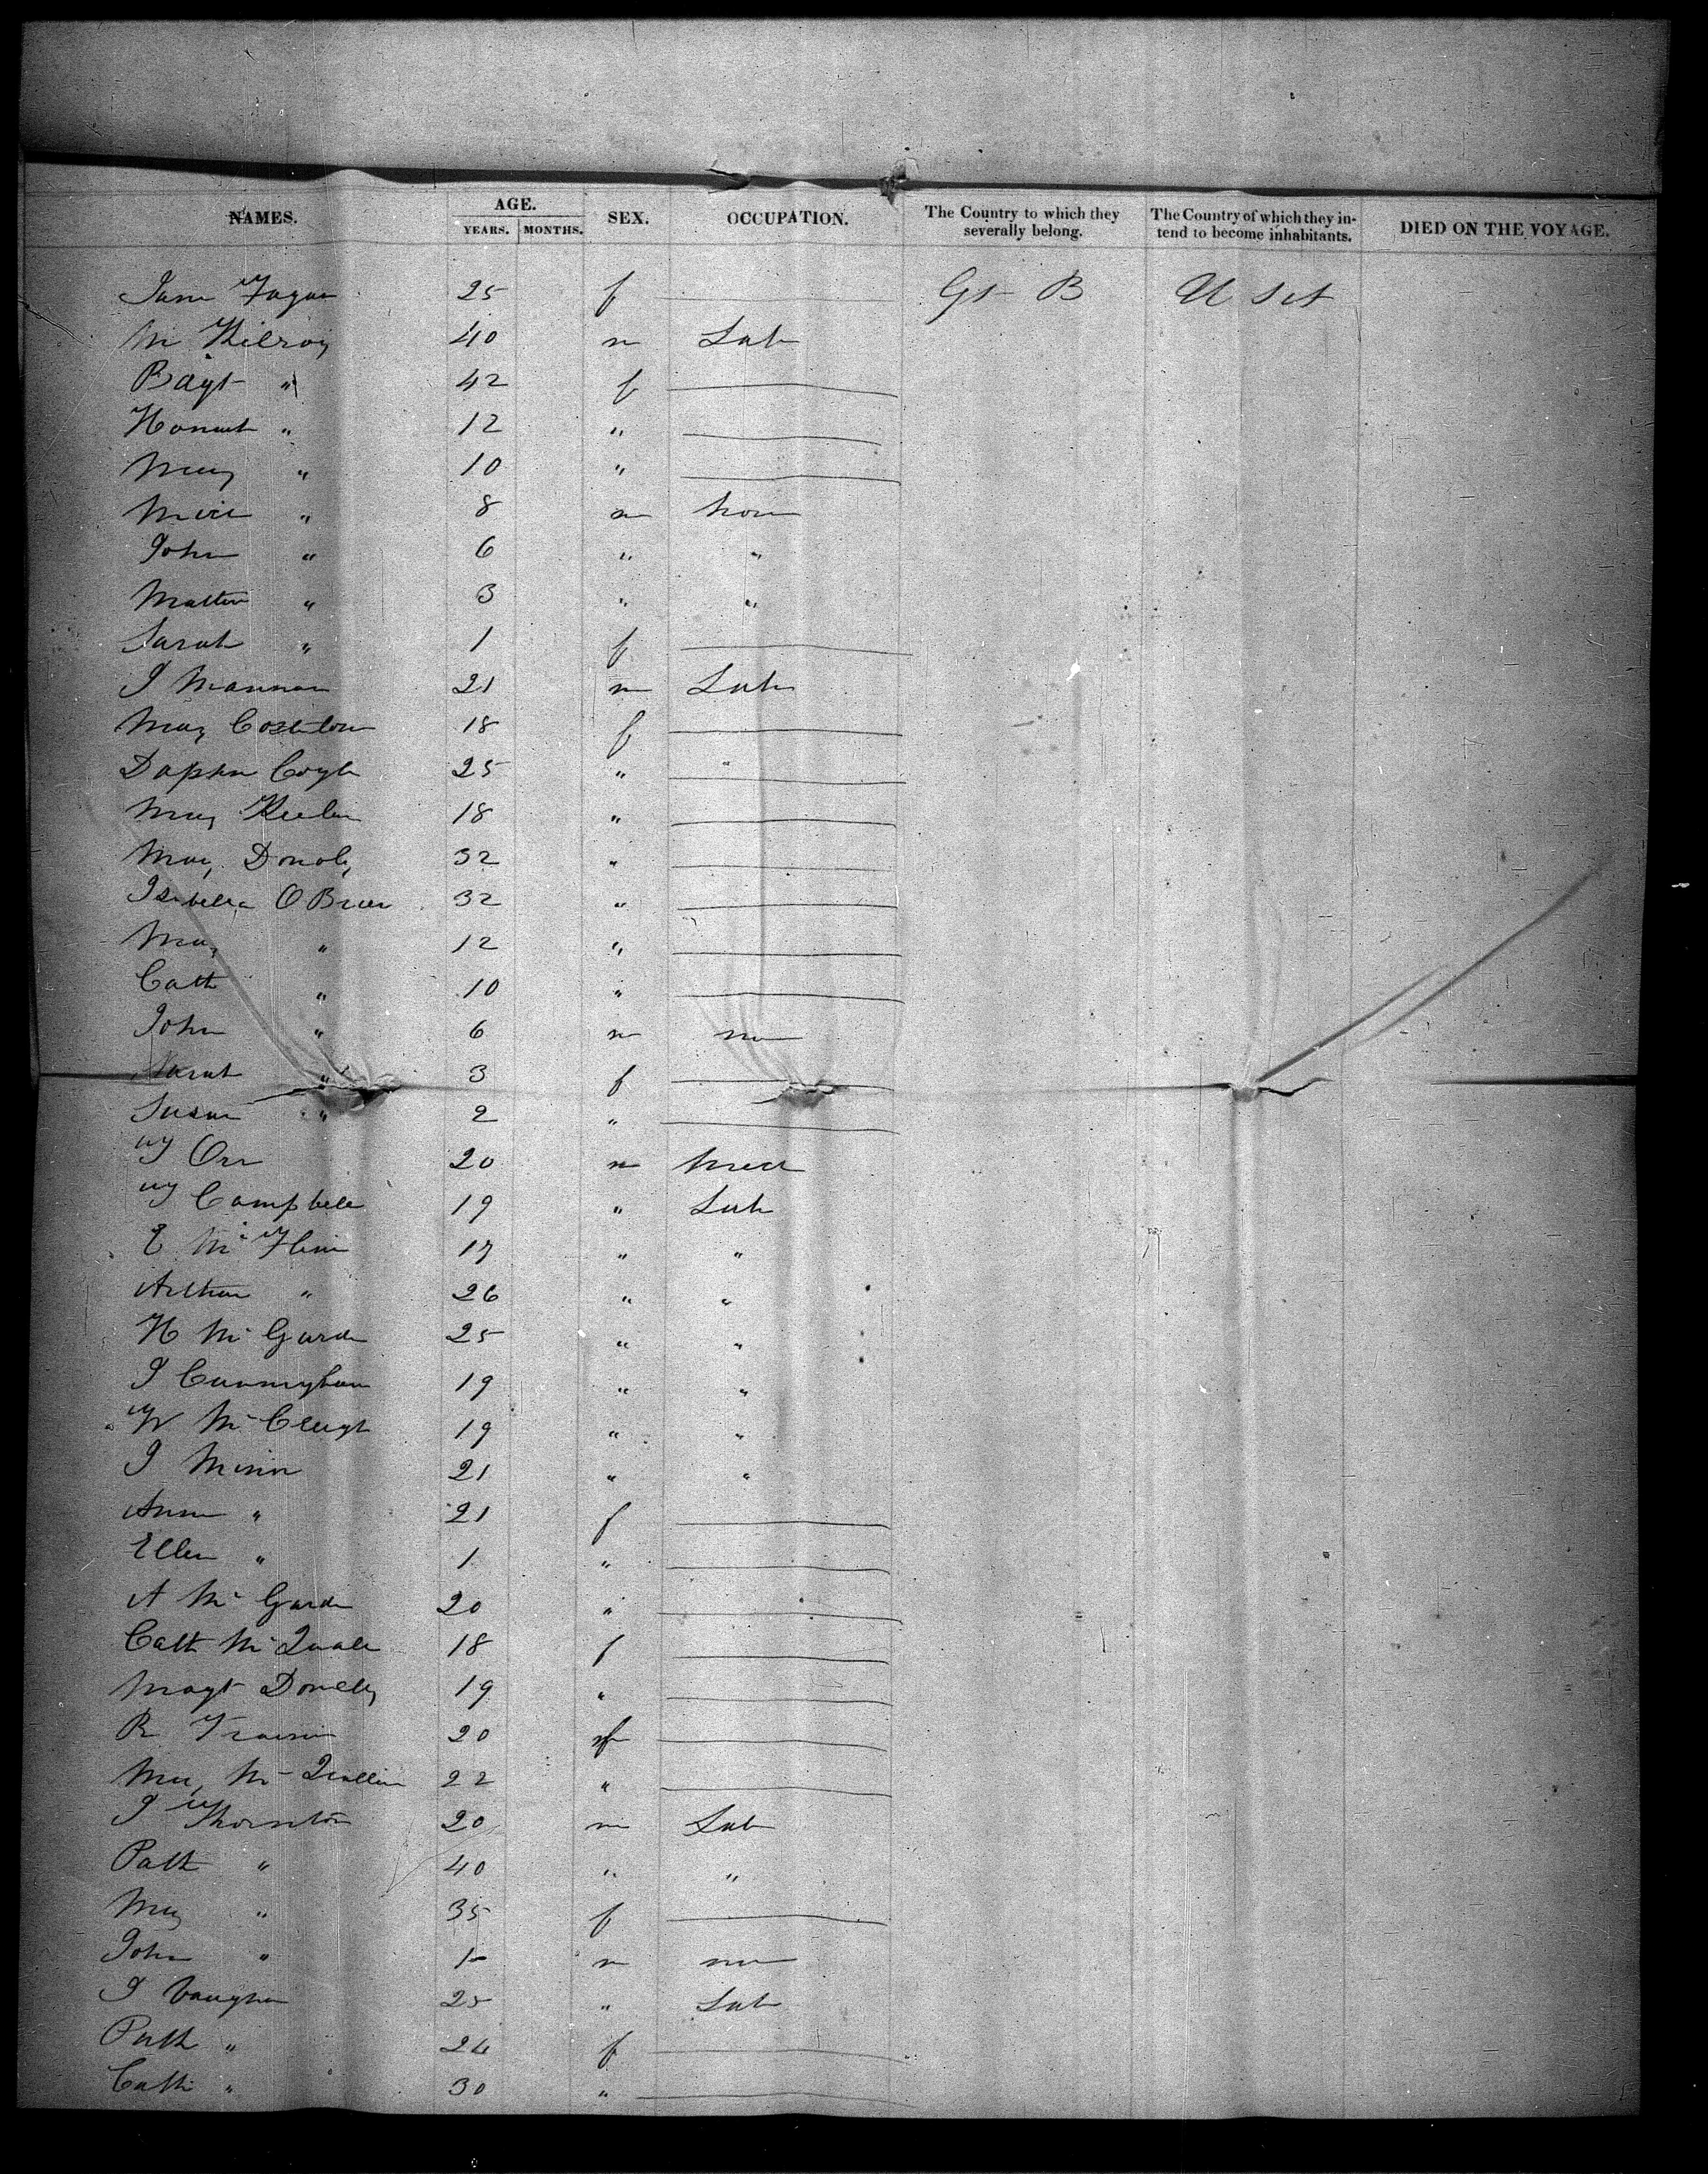 NAMES. AGE. YEARS. MONTHS. SEX. OCCUPATION. The Country to which they severally belong. The Country of which they intend to become inhabitants. DIED ON THE VOYAGE.
Jane Fagan 25 f Gt B U S A
M Kilroy 40 m Lab
Bdgt " 42 f
Honnah " 12 "
Mary " 10 "
8 m non
John " 6 " "
Matten " 3 " "
Sarah " 1 f
J Mannan 21 m Lab
Mary Costelow 18 f
Daphn Coyle 25 "
Mary 18 "
Mary 32 "
Isabella O Brien 32 "
Mary " 12 "
Cath " 10 "
John " 6 m non
Sarah " 3 f
Susan " 2 "
Orr 20 m
Campbell 19 " Lab
E Mc 17 " "
Arthur " 26 " "
H Mc Garde 25 " "
J Cunningham 19 " "
W Mc Clugh 19 " "
J 21 " "
Ann " 21 f
Ellen " 1 "
A Mc Garde 20 "
Cath Mc Quale 18 f
Magt Donelly 19 "
R 20 f
Mary Mc Quillin 22 "
J Thornton 20 m Lab
Patk " 40 " "
Mary " 35 f
John " 1 m non
J Vaughan 25 " Lab
Patk " 24 f
Cath " 30 "